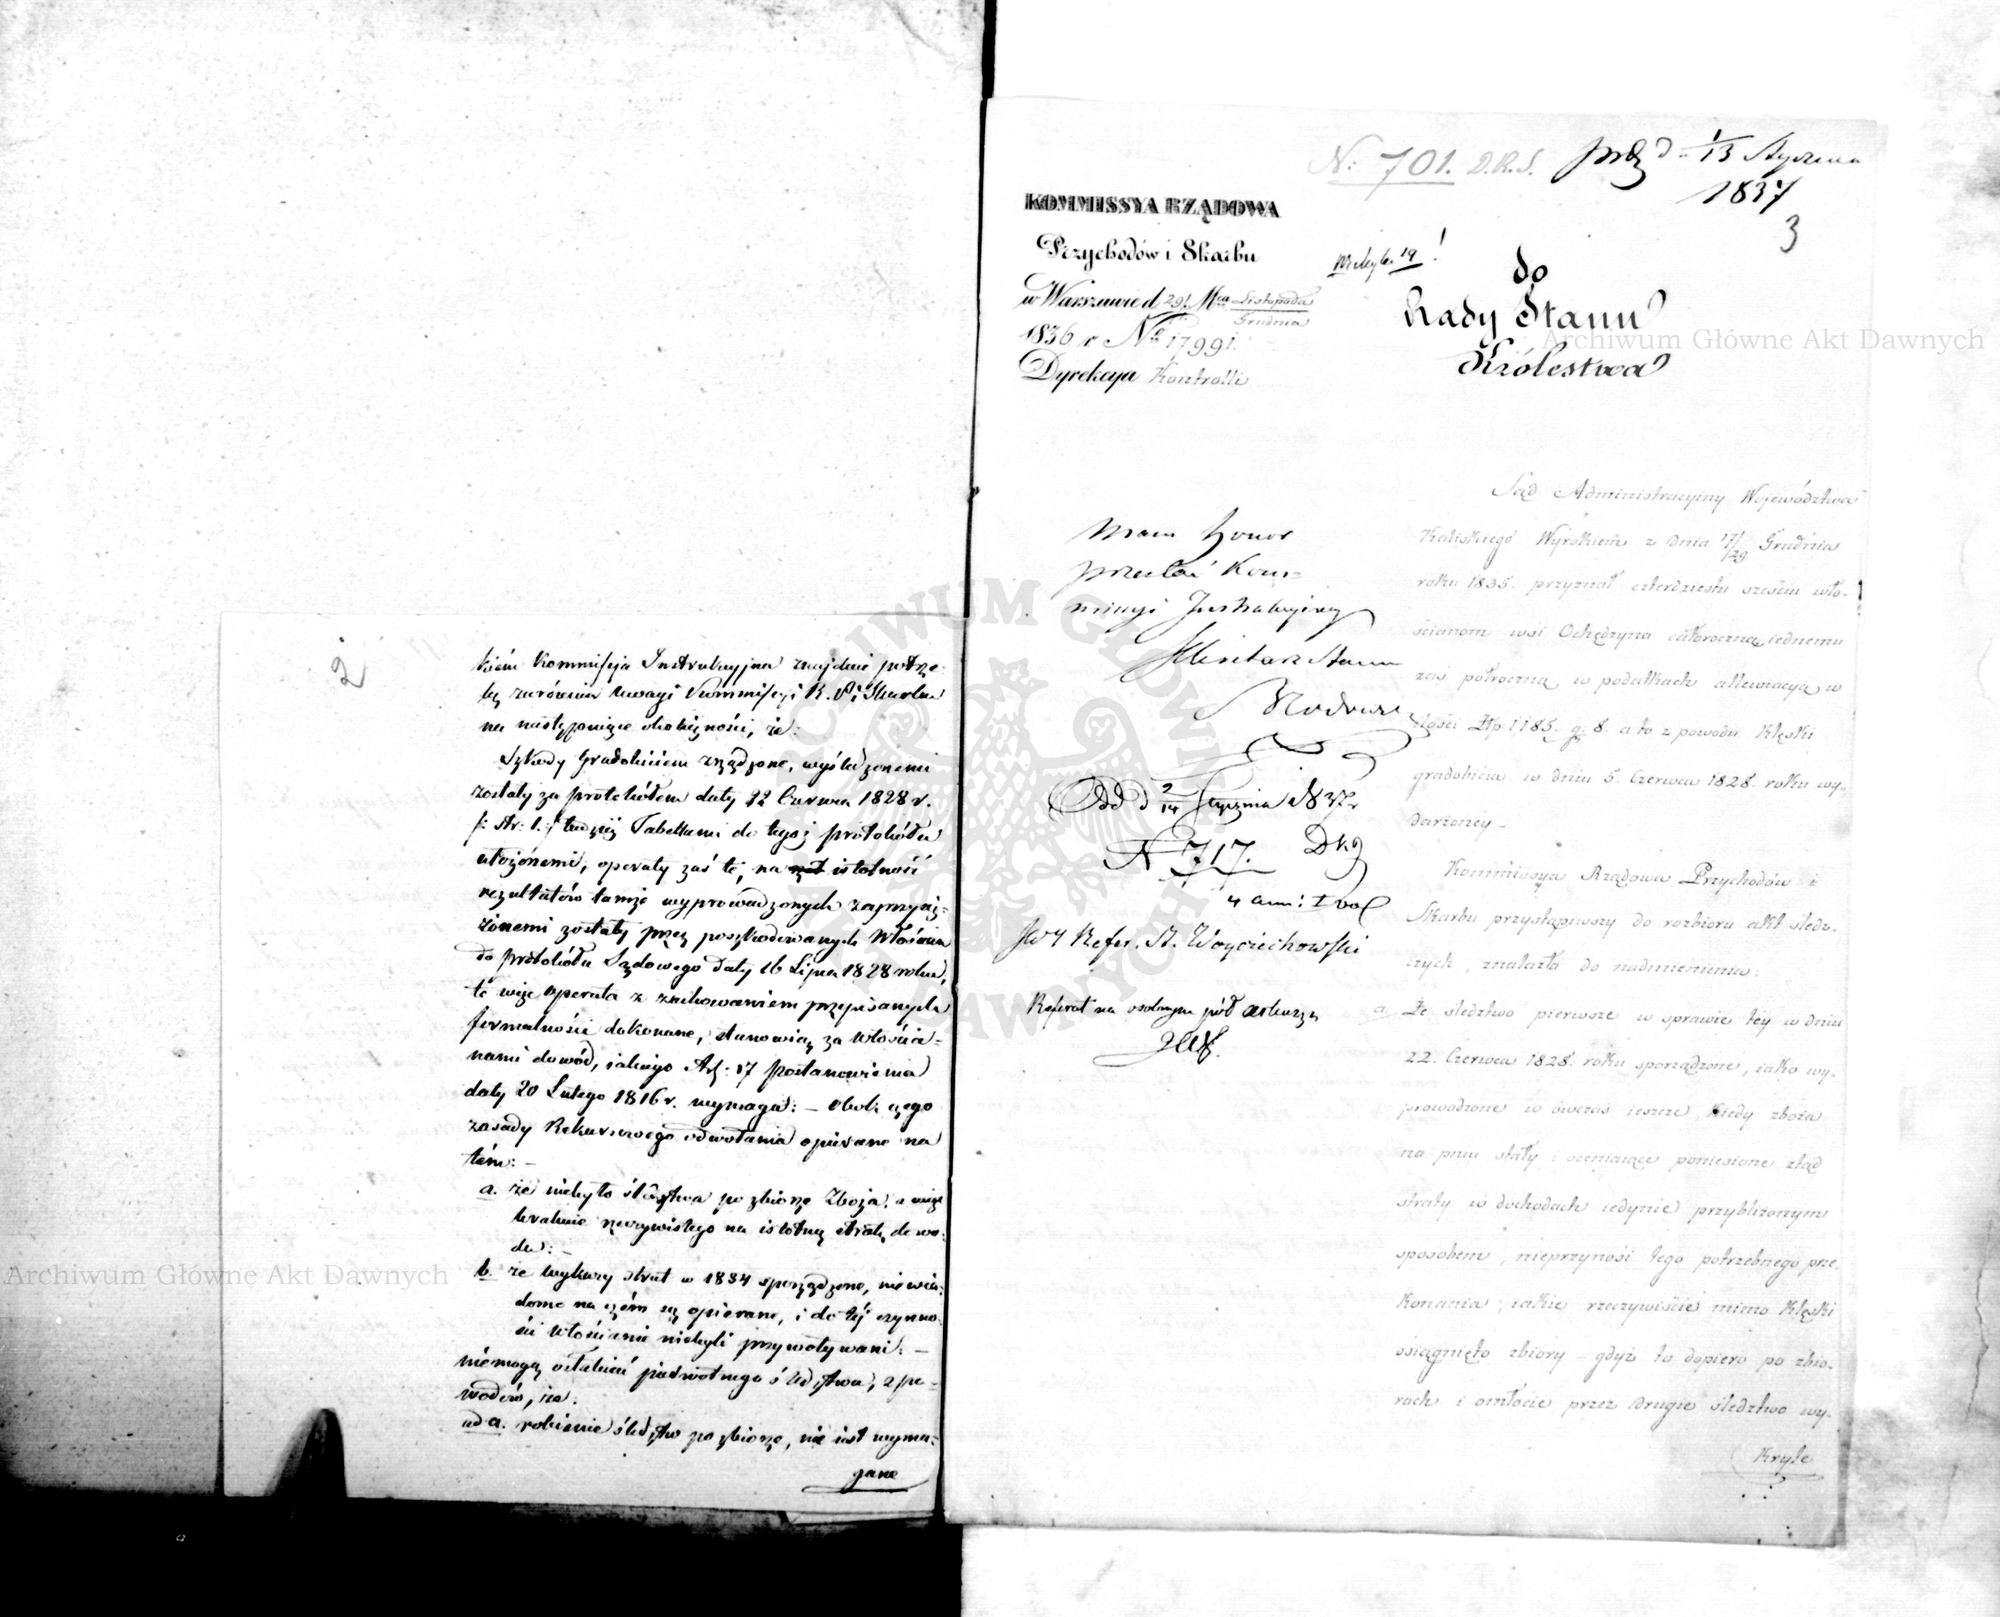 2
kiém Kommissja Instrukcyjna znajdzie potrze-
bę zwrócenia uwagi Kommissyi R. P. i Skarbu
na następujące okoliczności, że:
Szkody Gradobiciem zrządzone, wyśledzonemi
zostały za protokółem daty 22 Czerwca 1828 r.
/: Nr: 1. :/ tudzież Tabellami do tegoż protokółu
ułożonemi, operaty zaś te, na istotność
rezultatów tamże wyprowadzonych zaprzysię-
żonemi zostały przez poszkodowanych Włościan
do protokółu Sądowego daty 16 Lipca 1828 roku,
te więc operata z zachowaniem przepisanych
formalności dokonane, stanowią za włościa-
nami dowód, iakiego Art: 17 Postanowienia
daty 20 Lutego 1816 r. wymaga: – Obok czego
zasady Rekursowego odwołania opierane na
tém: –
a. że niebyło śledztwa po zbiorze Zboża, a więc
braknie rzeczywistego na istotną stratę dowo-
du: –
b. że wykazy strat w 1834 sporządzone, niewia-
domo na czém są opierane, i do téj czynno-
ści Włościanie niebyli przywoływani: –
niemogą osłabiać pierwotnego śledztwa, z po-
wodów, że:
ad a. robienie śledztwa po zbiorze, nie iest wyma-
gane
N: 701. D.R.S. d. 1/13 Stycznia
1837
3
KOMMISSYA RZĄDOWA
Przychodów i Skarbu
w Warszawie d. 29 Mca Listopada
Grudnia
1836 r. No 17991.
Dyrekcya Kontrolli
do
Rady Stanu
Królestwa
Mam honor
przesłać Kom-
missyi Instrukcyjney
Sekretarz Stanu
Odd d 2/14 Stycznia 1837 r
N 717.
Refer. St. Woyciechowski
Referat na osobnym pół arkuszu
Sąd Administracyiny Województwa
Kaliskiego Wyrokiem z dnia 17/29 Grudnia
roku 1835. przyznał czterdziestu sześciu wło-
ścianom wsi Ochędzyna całoroczną, iednemu
zaś półroczną, w podatkach allewiacyą w
ilości Złp. 1185. g. 8. a to z powodu klęski
gradobicia w dniu 5. Czerwca 1828. roku wy-
darzoney –
Kommissya Rządowa Przychodów i
Skarbu przystąpiwszy do rozbioru akt śled-
czych, znalazła do nadmienienia:
a. Że śledztwo pierwsze w sprawie tey w dniu
22. Czerwca 1828. roku sporządzone, iako wy-
prowadzone w ówczas ieszcze, kiedy zboża
na pniu stały i oceniaiące poniesione ztąd
straty w dochodach iedynie przybliżonym
sposobem, nieprzynosi tego potrzebnego prze-
konania, iakie rzeczywiście mimo klęski
osiągnięto zbiory – gdyż to dopiero po zbio-
rach i omłocie przez drugie śledztwo wy-
kryte